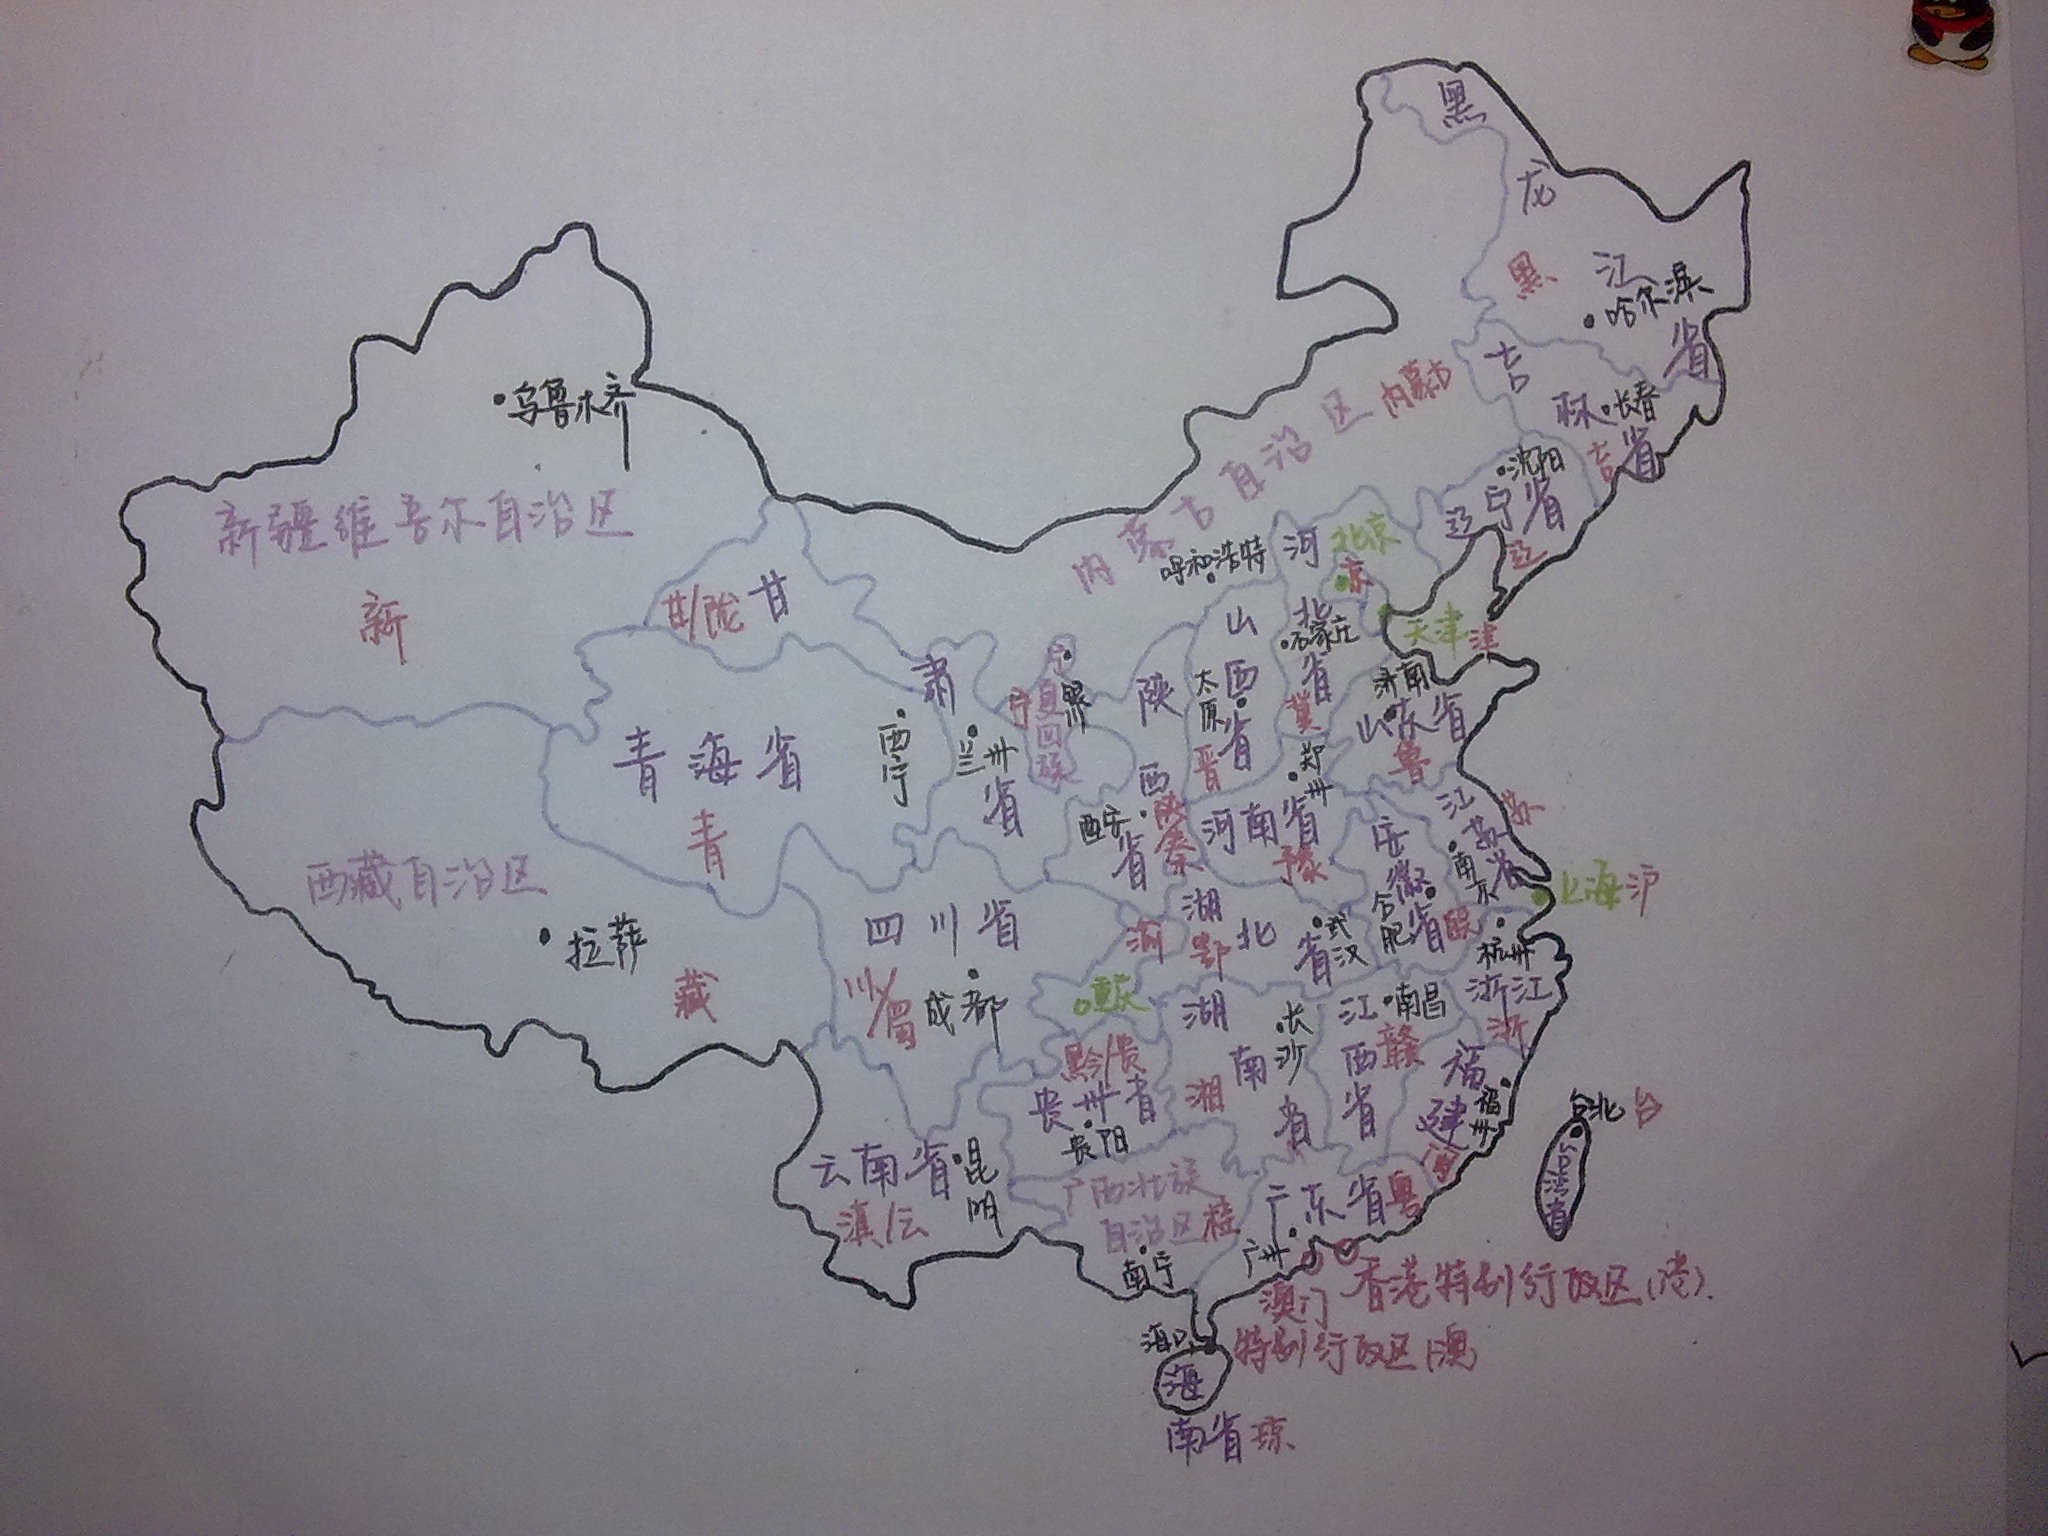 黑
龙
江
省
黑
哈尔滨
吉
林
省
吉
长春
沈阳
辽宁省
辽
乌鲁木齐
新疆维吾尔自治区
新
内蒙古自治区 内蒙古
呼和浩特
河
北
省
冀
石家庄
北京
京
天津 津
甘/陇 甘
肃
省
兰州
宁
宁夏
回
族
陕
西
省
陕
秦
西安
山
西
省
晋
太
原
济南
山东省
鲁
青海省
青
西
宁
郑
州
河南省
豫
江
苏
省
苏
南
京
安
徽
省
皖
合
肥
上海 沪
西藏自治区
拉萨
藏
四川省
川/蜀
成都
渝
重庆
湖
北
省
鄂
武
汉
杭州
浙江
浙
湖
南
省
湘
长
沙
江
西
省
赣
南昌
黔/贵
贵州省
贵阳
福
建
福
州
台北 台
台湾省
云南省
滇/云
昆
明
广西壮族
自治区 桂
南宁
广东省 粤
广州
香港特别行政区(港).
澳门
特别行政区(澳)
海口
海
南省 琼